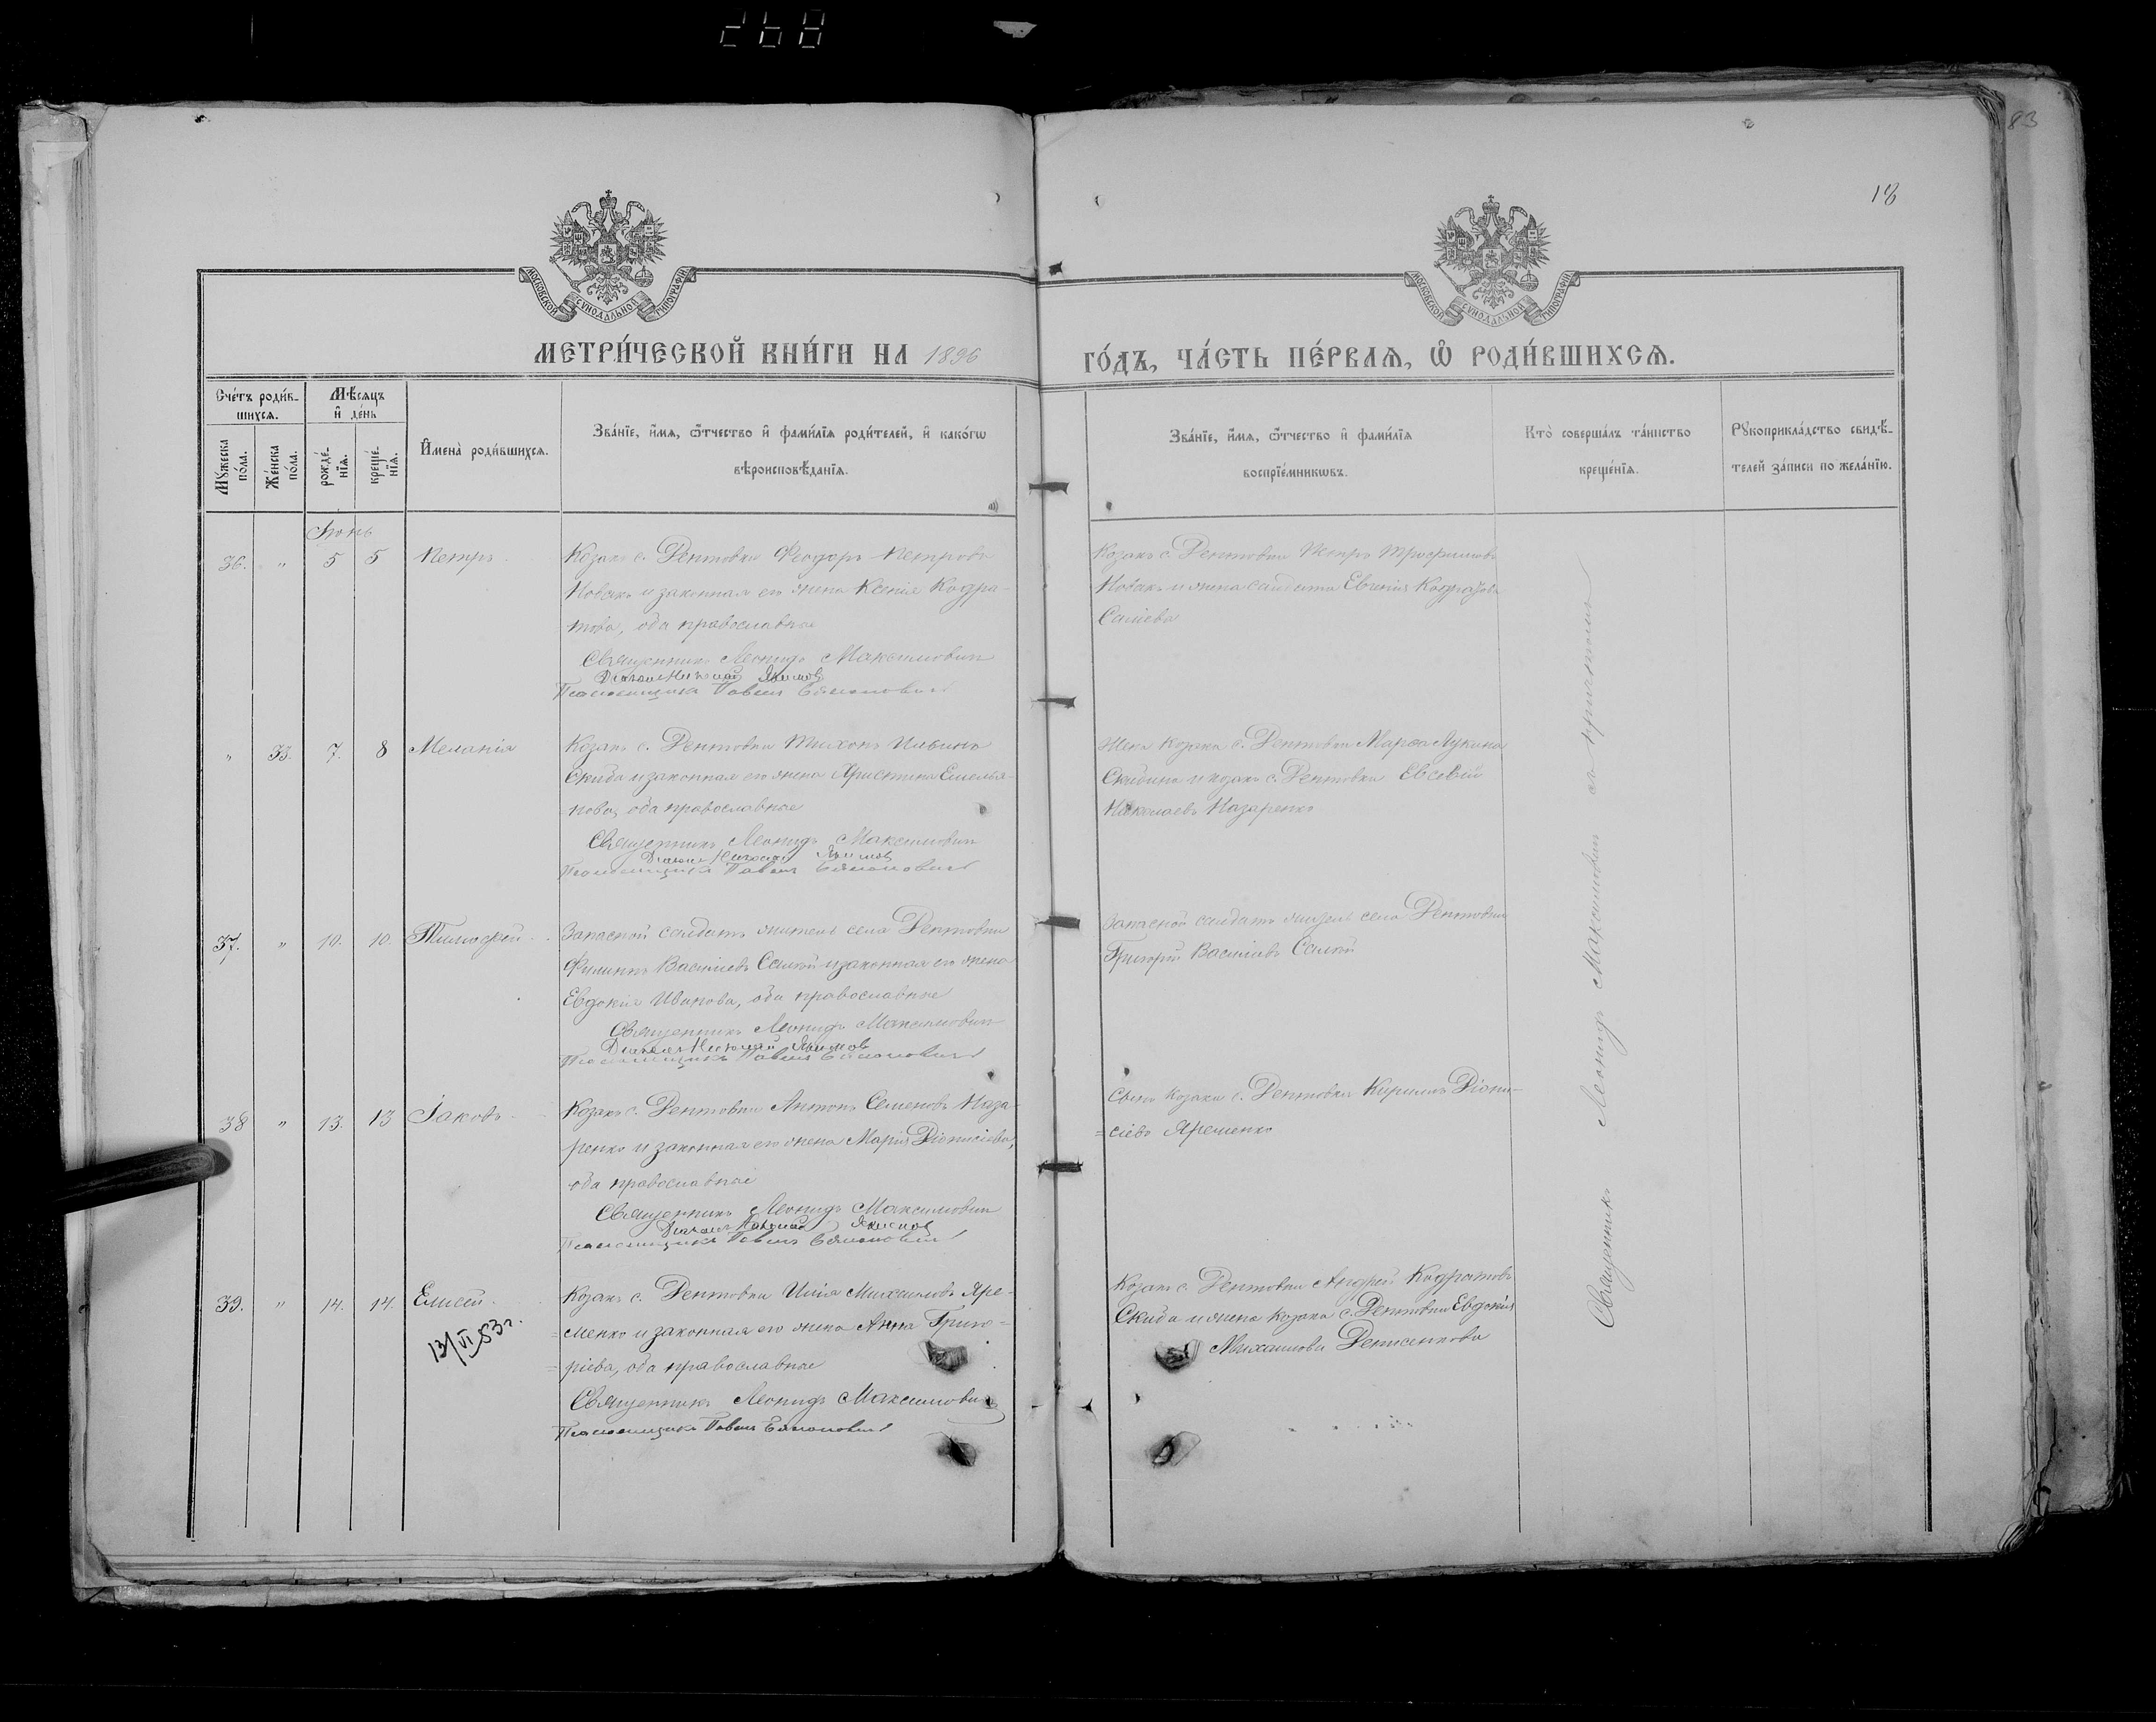 268
83
18
МОСКОВСКОЙ СѴНОДАЛЬНОЙ ТИПОГРАФІИ
МОСКОВСКОЙ СѴНОДАЛЬНОЙ ТИПОГРАФІИ
МЕТРИ́ЧЕСКОЙ КНИ́ГИ НА 1896
ГО́ДЪ, ЧА́СТЬ ПЕ́РВАЯ, Ѡ РОДИ́ВШИХСЯ.
Сче́тъ роди́в-
шихся.
Мѣ́сяцъ
и де́нь
Мꙋ́жеска
по́ла.
Же́нска
по́ла.
рожде́-
нїя.
креще́-
нїя.
И҆мена̀ роди́вшихся.
Зва́нїе, и҆́мя, ѻ҆́тчество и҆ фами́лїя роди́телей, и҆ како́гѡ
вѣроисповѣ́данїя.
Зва́нїе, и҆́мя, ѻ҆́тчество и҆ фами́лїя
воспрїе́мникѡвъ.
Кто̀ соверша́лъ та́инство
креще́нїя.
Рꙋкоприкла́дство свидѣ́-
телей за́писи по жела́нїю.
Іюнь
36. " 5 5 Петръ
Козакъ с. Рептовки Ѳеодоръ Петровъ
Новакъ и законная его жена Ксенія Кодра-
това, оба православные
Священникъ Леонидъ Максимовичъ
Діаконъ Николай Якимов
Псаломщикъ Павелъ
Козакъ с. Рептовки Петръ Трофимовъ
Новакъ и жена солдата Евгенія Кодратова
" 33. 7. 8 Меланія
Козакъ с. Рептовки Тихонъ Ильинъ
Скида и законная его жена Христина Емелья-
нова, оба православные
Священникъ Леонидъ Максимовичъ
Діаконъ Николай Якимов
Псаломщикъ Павелъ
Жена козака с. Рептовки Марѳа Лукина
Скидина и козакъ с. Рептовки Евсевій
Николаевъ Назаренко
37. " 10. 10. Тимофей
Запасной солдатъ житель села Рептовки
Филиппъ Васильевъ и законная его жена
Евдокія Иванова, оба православные
Священникъ Леонидъ Максимовичъ
Діаконъ Николай Якимов
Псаломщикъ Павелъ
Запасной солдатъ житель села Рептовки
Григорій Васильевъ
38 " 13. 13 Іаковъ
Козакъ с. Рептовки Антонъ Семеновъ Наза-
ренко и законная его жена Марія Діонисіева,
оба православные
Священникъ Леонидъ Максимовичъ
Діаконъ Николай Якимов
Псаломщикъ Павелъ
Сынъ козака с. Рептовки Кириллъ Діони-
=сіевъ Яременко
39. " 14. 14. Елисей
13/VI 83г.
Козакъ с. Рептовки Илія Михаиловъ Яре-
=менко и законная его жена Анна Григо=
=ріева, оба православные
Священникъ Леонидъ Максимовичъ
Псаломщикъ Павелъ
Козакъ с. Рептовки Андрей Кодратовъ
Скида и жена козака с. Рептовки Евдокія
Михаилова Денисенкова
Священникъ Леонидъ Максимовичъ съ причтомъ